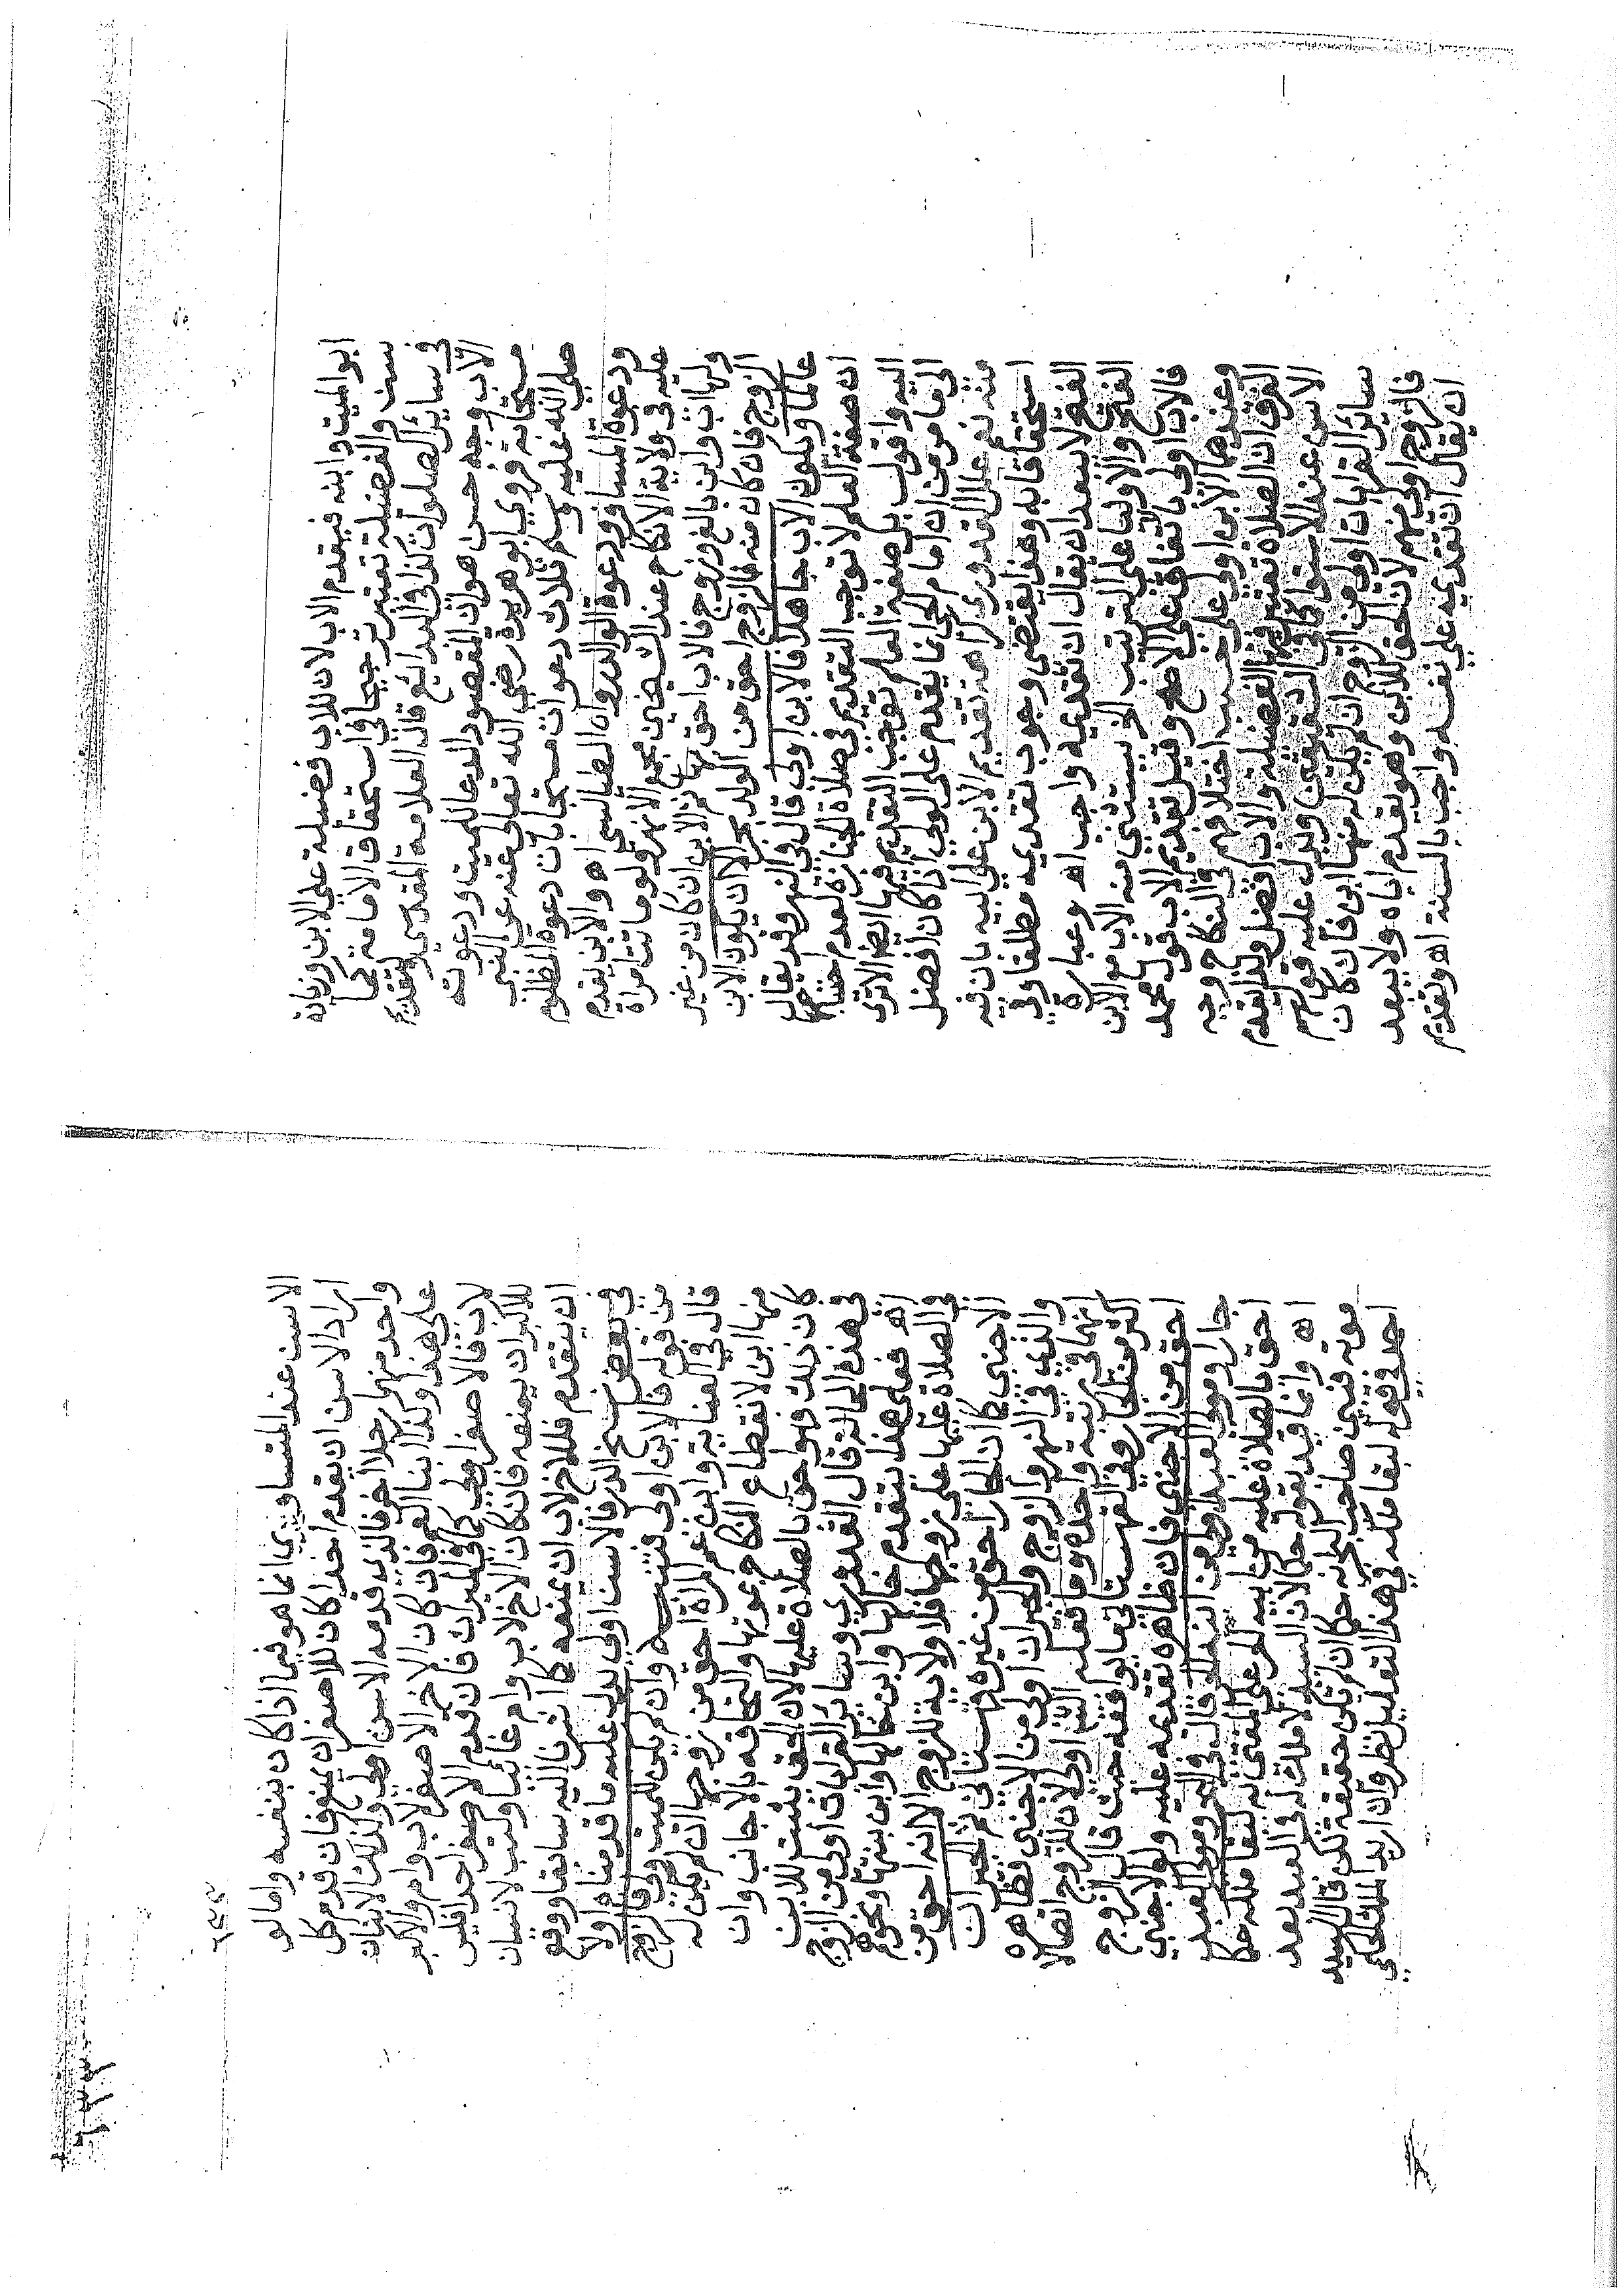 ابو الميت وابنه فيقدم الاب لان للاب فضيلة على الابن وزيادة
سن والفضيلة تعتبر ترجيحا في استحقاق الامامة كما
في سائر الصلوات كذا في البدائع قال العلامة المقدسي لتقديم
الاب وجه حسن هو ان المقصود الدعا للميت ودعوته
مستجابة فروي ابو هريرة رضي الله تعالى عنه عن النبي
صلى الله عليه وسلم ثلاث دعوات مستجابات دعوة المظلوم
ودعوة المسافر ودعوة الوالد رواه الطيالسي اه والابن يقدم
عليه في ولاية الانكاح عند الشيخين مجمع الانهر ولو ماتت امراة
ولها اب وابن بالغ وزوج فالاب احق بها ثم الابن ان كان من غير
الزوج فان كان منه فالزوج احق من الولد بحر الا ان يكون الابن
عالما ويكون الاب جاهلا فالابن اولى قال في النهر وقد يقال
ان صفة العلم لا توجب التقديم في صلاة الجنازة لعدم احتياجها
اليه واقول بل صفة العلم توجب التقديم فيها ايضا الا ترى
الى ما مر من ان امام الحي انما يقدم على الولي اذا كان افضل
منه نعم علل القدوري كراهة تقديم الابن على ابيه بان فيه
استخفافا به وهذا يقتضي وجوب تقديمه مطلقا وفي
الفتح لا يبعد ان يقال ان تقديمه واجب اه وعبارة
الفتح والاوليا على الترتيب الخ يستثنى منه الاب مع الابن
فالاب اولى باتفاق على الاصح وقيل تقديم الاب قول محمد
وعندهما الابن اولى على حسب اختلافهم في النكاح ووجه
الفرق ان الصلاة تعتبر فيها الفضيلة والاب افضل ولذا يقدم
الاسن عند الاستوا كما في الشقيقين ويدل عليه قولهم
سائر القرابات اولى من الزوج ان لم يكن له منها ابن فان كان
فالزوج اولى منهم لان الحق للابن وهو يقدم اباه ولا يبعد
ان يقال ان تقديمه على نفسه واجب بالسنة اه وتقديم
الاسن عند التساوي انما هو فيما اذا كان بنفسه واما لو
اراد الاسن ان يقدم احدا كان للاصغر ان يمنع فان قدم كل
واحد منهما رجلا اخر فالذي قدمه الاسن اولى وكذلك الابنان
على هذا وكذا ابنا العم فان كان الاخ الاصغر لاب وام والاكبر
لاب فالاصغر اولى كما في الميراث فان قدم الاصغر احدا فليس
للاكبر ان يمنعه فان كان الاخ لاب وام غائبا وكتب لانسان
ان يتقدم فللاخ لاب ان يمنعه كما اشرنا اليه سابقا ووقع
في بعض نسخ الدر فالاسن اولى يدل عليه ما قدمناه اولا
من قوله فالابن اولى فتنبه وان لم يكن للميت ولي فالزوج
قال في العناية وابن عم المراة احق من زوجها ان لم يكن له
منها ابن لانقطاع النكاح بموتها والتحاقه بالاجانب وان
كان ذلك فهو احق بالصلاة عليها لان الحق يثبت للابن
في هذه الحالة قال القدوري وسائر القرابات اولى من الزوج
اه فعلى هذا يتقدم خالها وابن خالها وابن بنتها ونحوهم
في الصلاة عليها على زوجها فلا ولاية للزوج الا انه احق من
الاجنبي كما ان الجار احق من غيره قهستاني ثم الجيران
والذي في النهر والزوج والجيران اولى من الاجنبي فظاهره
انهما في رتبة واحدة وما فعله الشا اولى لان للزوج اتصالا
اكثر من الجار وفي القهستاني ما يوافقه حيث قال الزوج
احق من الاجنبي فان ظاهره تقديمه عليه ولو الاجنبي
جارا ومولى العبد اولى من ابنه الحر قال في البحر ومولى العبد
احق بالصلاة عليه من ابيه الحر على المفتى به لبقا ملكه حكما
اه وانما قيد بقوله حكما لان السيد لا ملك له في العبد بعد
موته فنبه صاحب البحر انه حكما وان لم يكن حقيقة لكن قال السيد
احمد في قوله لبقا ملكه في هذا التعليل نظر وان اريد الملك الحكمي